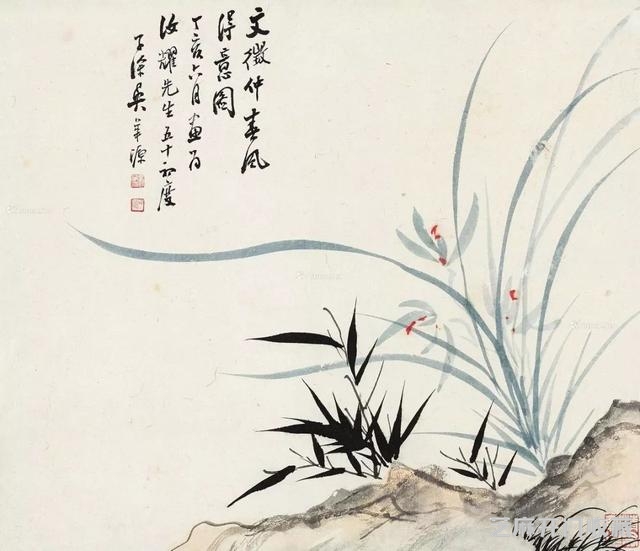 文徵仲春風
得意圖
丁亥六月畫為
汝耀先生五十初度
子深吳華源